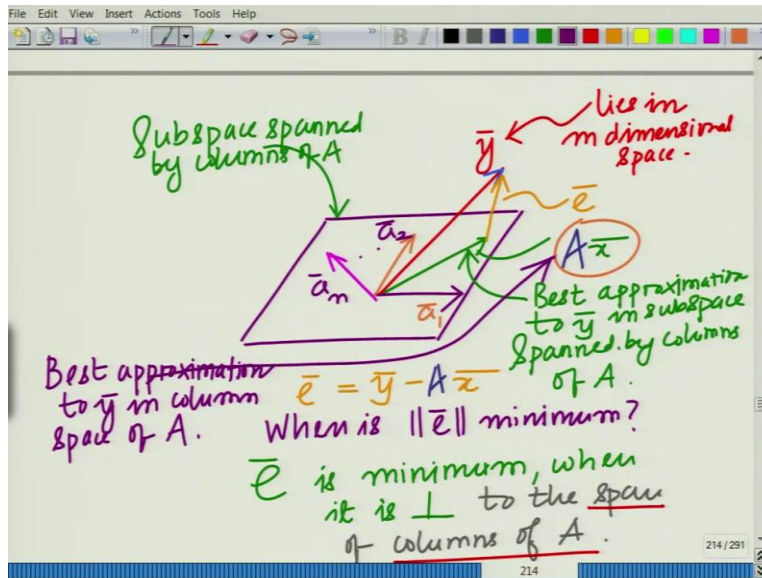 File Edit View Insert Actions Tools Help
B I
Subspace spanned
by columns of A
lies in
m dimensional
space.
ȳ
ē
ā₂
āₙ
ā₁
Ax̄
Best approximation
to ȳ in subspace
spanned by columns
of A.
Best approximation
to ȳ in column
space of A.
ē = ȳ - Ax̄
When is ||ē|| minimum?
ē is minimum, when
it is ⊥ to the span
of columns of A.
214 / 291
214